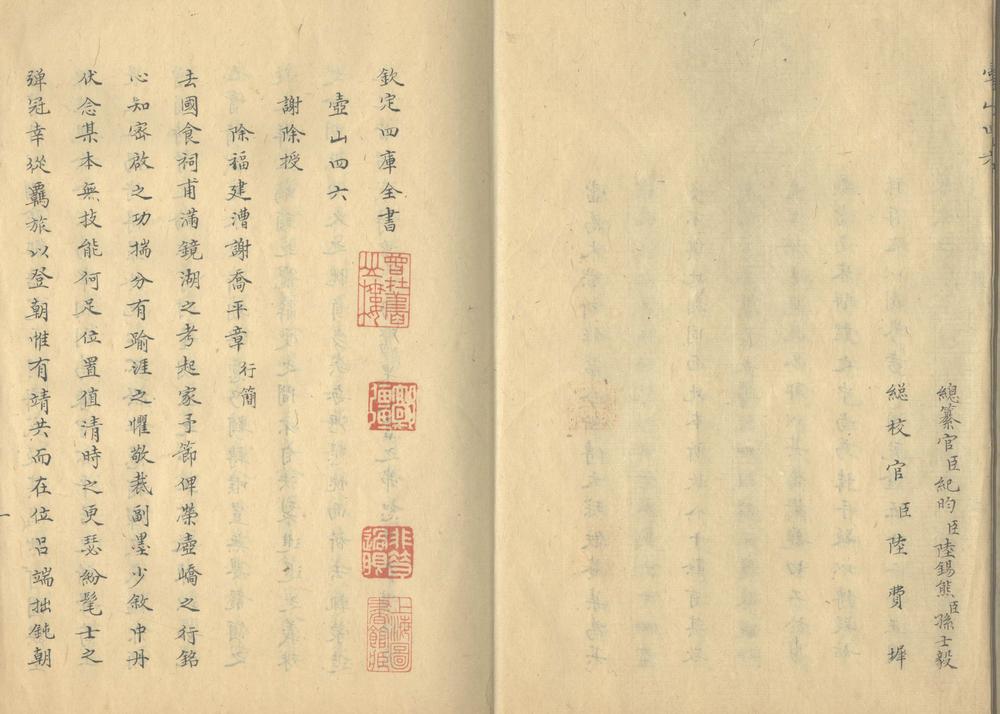 壺山四六
總纂官臣紀昀臣陸錫熊臣孫士毅
總校官臣陸費墀
欽定四庫全書
壺山四六
謝除授
除福建漕謝喬平章行簡
去國食祠甫滿鏡湖之考起家予節俾榮壺嶠之行銘
心知密啟之功揣分有踰涯之懼敬裁副墨少敘冲丹
伏念某本無技能何足位置值清時之更瑟紛髦士之
彈冠幸從羈旅以登朝惟有靖共而在位呂端拙鈍朝
非等過眼
上海圖書館藏